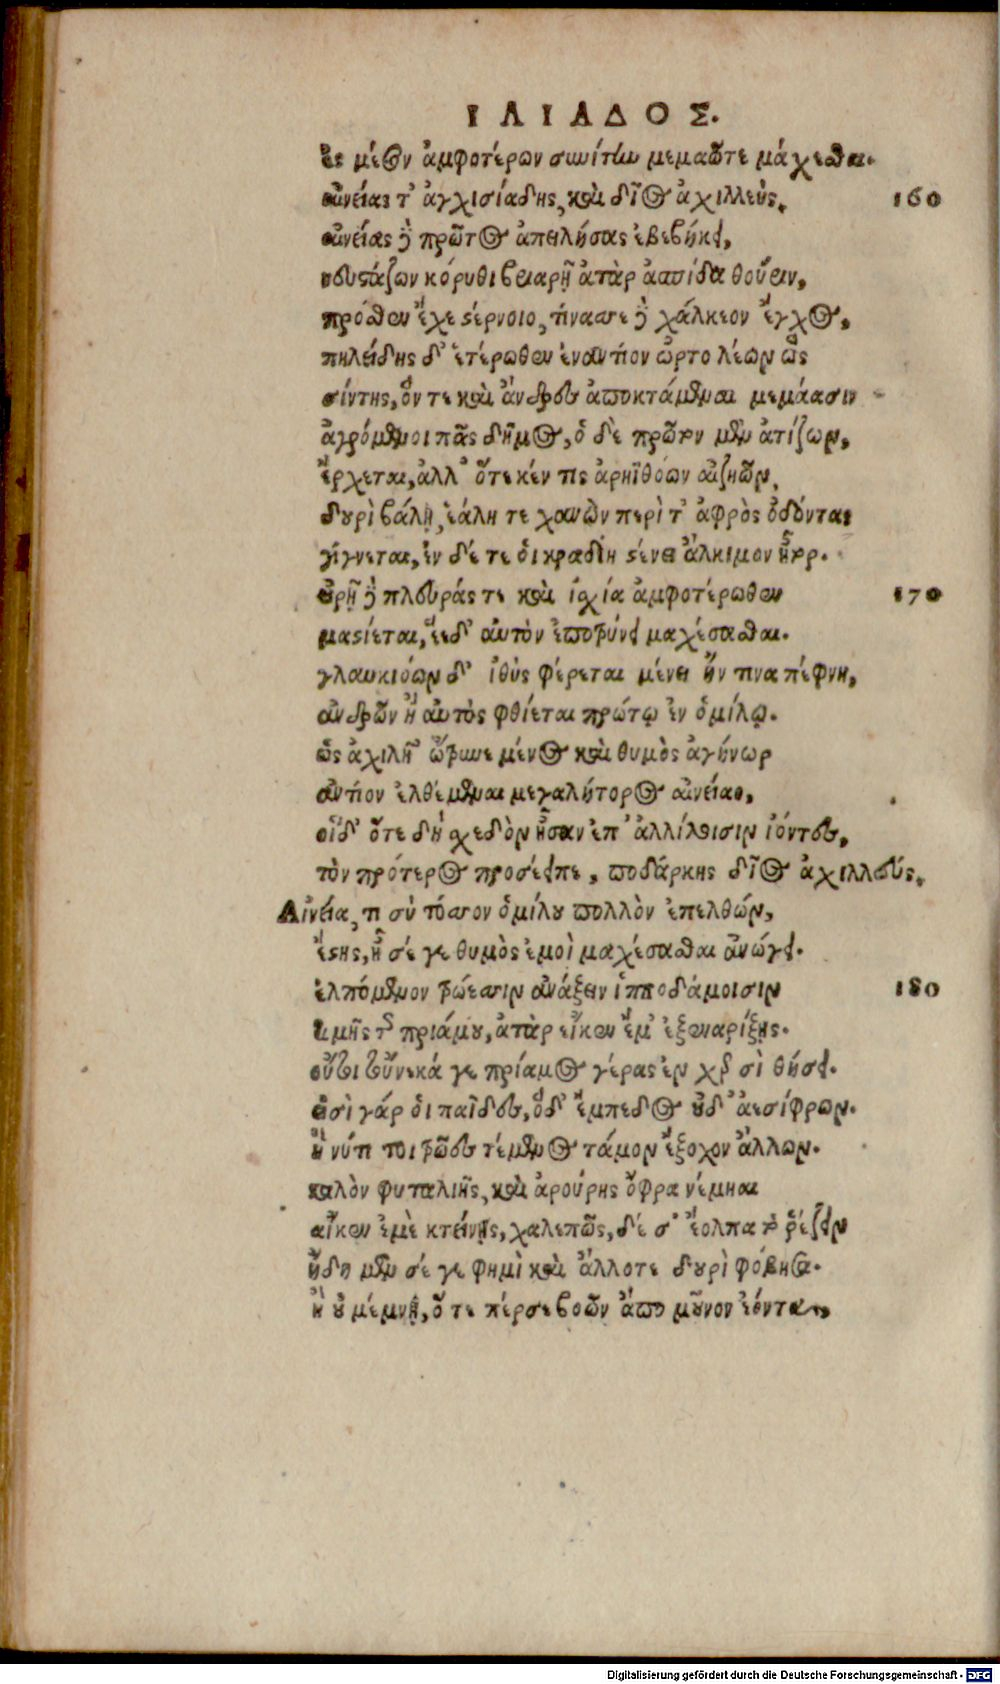 ΙΛΙΑΔΟΣ.
ἐς μέσον ἀμφοτέρων συνίτην μεμαῶτε μάχεσθαι.
αἰνείας τ' ἀγχισιάδης, καὶ δῖος ἀχιλλεύς. 160
αἰνείας δὲ πρῶτος ἀπειλήσας ἐβεβήκει,
νευστάζων κόρυθι βριαρῇ ἀτὰρ ἀσπίδα θοῦριν,
πρόσθεν ἔχε στέρνοιο, τίνασσε δὲ χάλκεον ἔγχος,
πηλείδης δ' ἑτέρωθεν ἐναντίον ὦρτο λέων ὣς
σίντης, ὅν τε καὶ ἄνδρες ἀποκτάμεναι μεμάασιν
ἀγρόμενοι πᾶς δῆμος, ὁ δὲ πρῶτον μὲν ἀτίζων,
ἔρχεται, ἀλλ' ὅτε κέν τις ἀρηϊθόων αἰζηῶν,
δουρὶ βάλῃ, ἐάλη τε χανὼν περὶ τ' ἀφρὸς ὀδόντας
γίγνεται, ἐν δέ τε οἱ κραδίη στένει ἄλκιμον ἦτορ.
οὐρῇ δὲ πλευράς τε καὶ ἰσχία ἀμφοτέρωθεν 170
μαστίεται, ἓε δ' αὐτὸν ἐποτρύνει μαχέσασθαι.
γλαυκιόων δ' ἰθὺς φέρεται μένει ἤν τινα πέφνῃ,
ἀνδρῶν ἢ αὐτὸς φθίεται πρώτῳ ἐν ὁμίλῳ.
ὣς ἀχιλῆ' ὤτρυνε μένος καὶ θυμὸς ἀγήνωρ
ἀντίον ἐλθέμεναι μεγαλήτορος αἰνείαο,
οἱ δ' ὅτε δὴ σχεδὸν ἦσαν ἐπ' ἀλλήλοισιν ἰόντες,
τὸν πρότερος προσέειπε, ποδάρκης δῖος ἀχιλλεύς.
Αἰνεία, τι σὺ τόσσον ὁμίλου πολλὸν ἐπελθών,
ἔστης, ἦ σέ γε θυμὸς ἐμοὶ μαχέσασθαι ἀνώγει.
ἐλπόμενον τρώεσσιν ἀνάξειν ἱπποδάμοισιν 180
τιμῆς τῆς πριάμου, ἀτὰρ εἴκεν ἔμ' ἐξεναρίξῃς.
οὔτοι τοὔνεκά γε πρίαμος γέρας ἐν χερσὶ θήσει.
εἰσὶ γάρ οἱ παῖδες, ὅδ' ἔμπεδος οὐδ' ἀεσίφρων.
ἦ νύ τι τοι τρῶες τέμενος τάμον ἔξοχον ἄλλων.
καλὸν φυταλιῆς, καὶ ἀρούρης ὄφρα νέμηαι
αἴκεν ἐμὲ κτείνῃς, χαλεπῶς, δέ σ' ἔολπα τὸ ῥέζειν
ἤδη μὲν σέ γε φημὶ καὶ ἄλλοτε δουρὶ φόβησα.
ἦ οὐ μέμνῃ, ὅ τε πέρ σε βοῶν ἄπο μοῦνον ἐόντα,
Digitalisierung gefördert durch die Deutsche Forschungsgemeinschaft - DFG